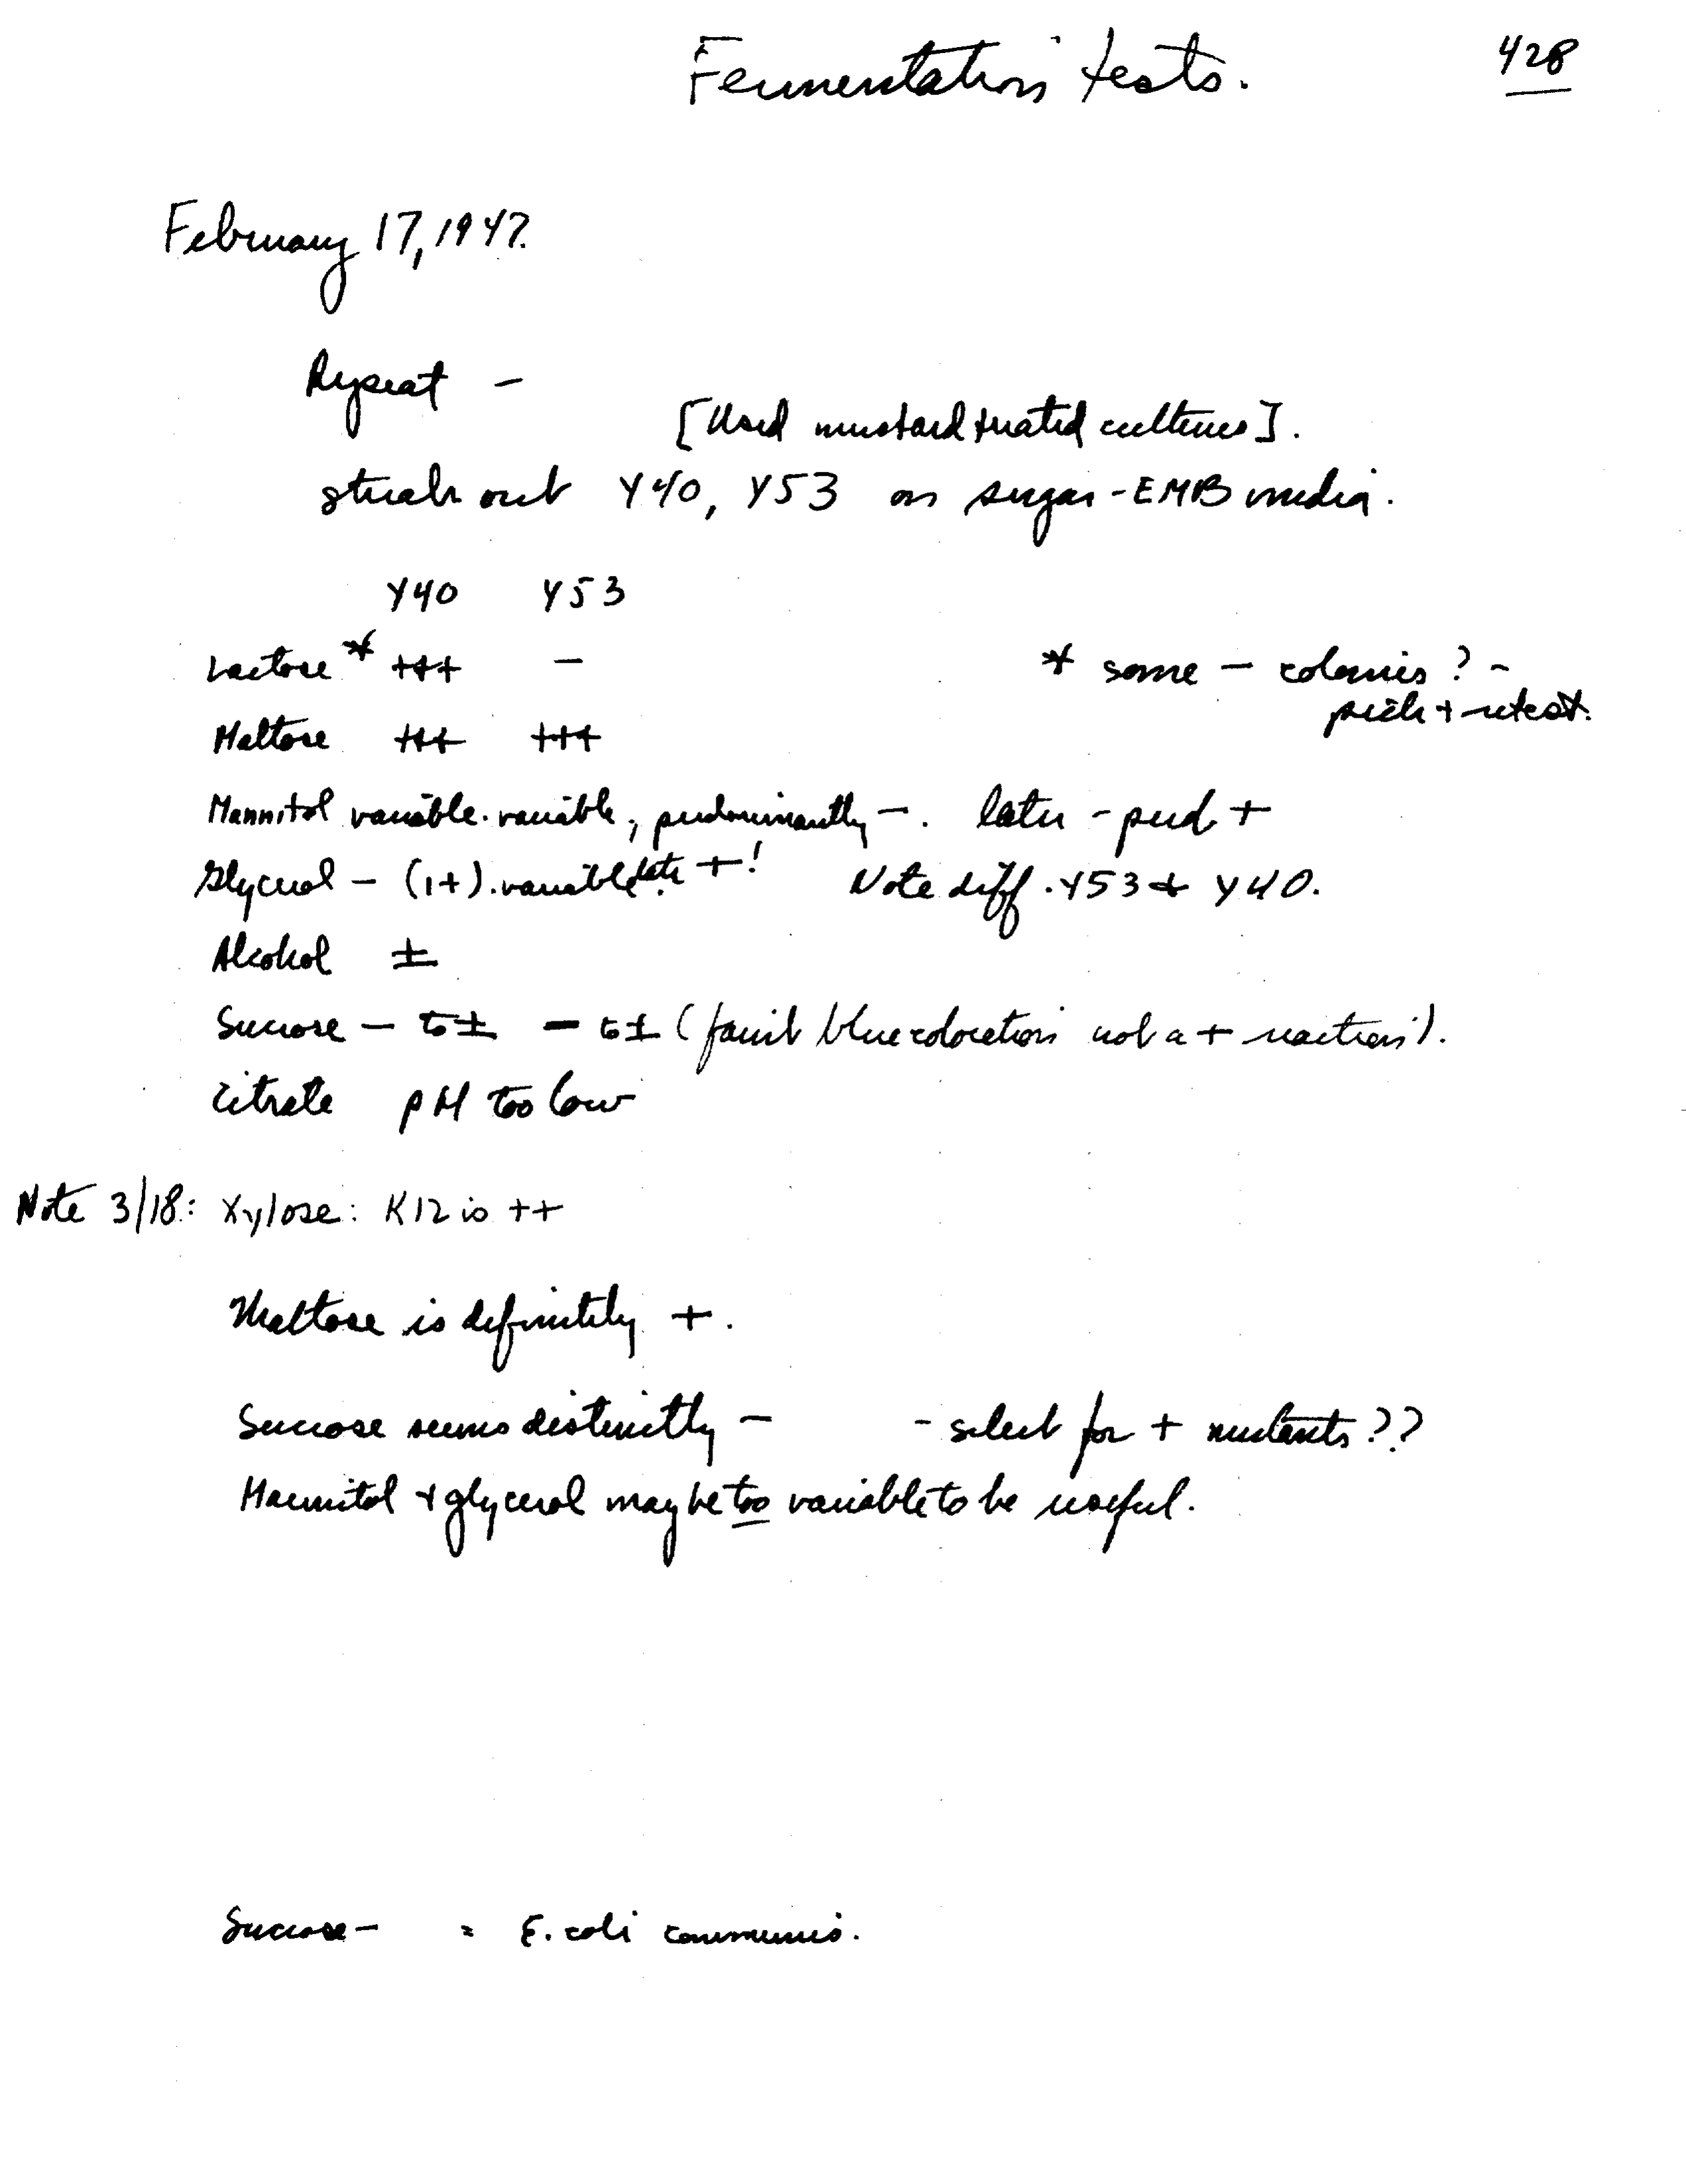 Fermentation tests.
428
February 17, 1947.
Repeat —
[Used mustard treated cultures].
streak out Y40, Y53 on sugar-EMB media.
Y40 Y53
Lactose * +++ — * some — colonies? -
pick + retest.
Maltose +++ +++
Mannitol variable. variable, predominantly —. later - pred. +
Glycerol — (1+). variable. late +! Note diff. Y53 + Y40.
Alcohol ±
Sucrose — to ± — to ± (faint blue coloration not a + reaction).
Citrate pH too low
Note 3/18: Xylose: K12 is ++
Maltose is definitely +.
Sucrose seems distinctly — - select for + mutants??
Mannitol + glycerol may be too variable to be useful.
Sucrose — = E. coli communis.